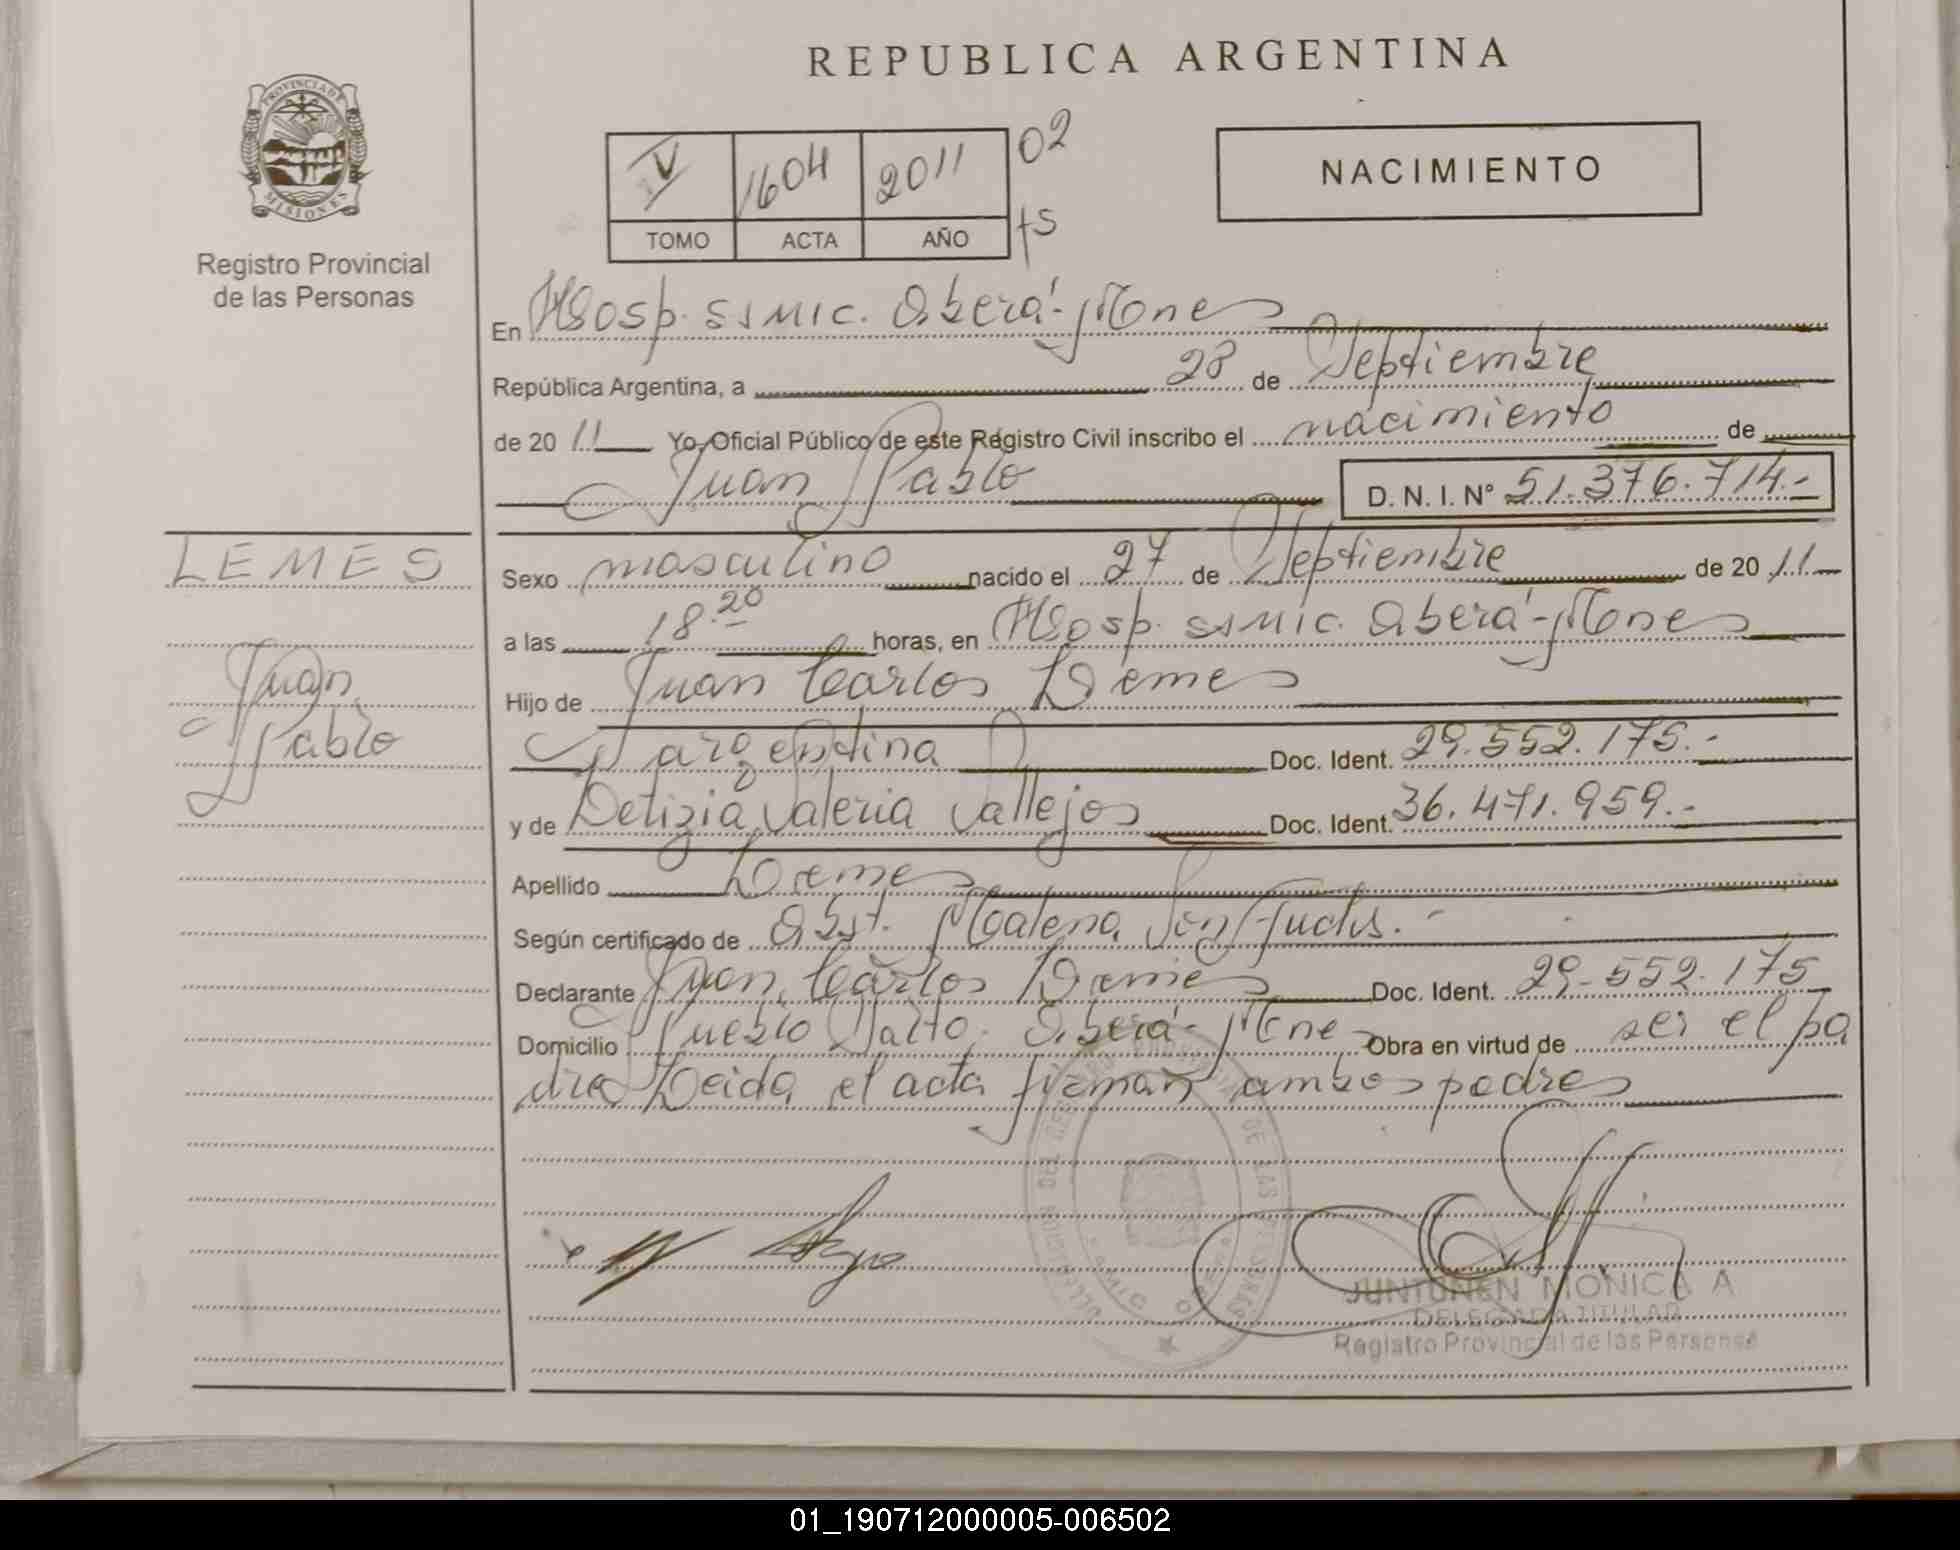 REPUBLICA ARGENTINA
PROVINCIA DE MISIONES
Registro Provincial
de las Personas
V 1604 2011 02
TOMO ACTA AÑO fs
NACIMIENTO
En Hosp. SSMIC. Oberá-Mnes
República Argentina, a 28 de Septiembre
de 2011 Yo, Oficial Público de este Registro Civil inscribo el nacimiento de
Juan Pablo D. N. I. N° 51.376.714.-
LEMES
Juan
Pablo
Sexo masculino nacido el 27 de Septiembre de 2011
a las 18.20 horas, en Hosp. SSMIC. Oberá-Mnes
Hijo de Juan Carlos Lemes
Argentina Doc. Ident. 29.552.175.-
y de Letizia Valeria Vallejos Doc. Ident. 36.471.959.-
Apellido Lemes
Según certificado de Obst. Malena
Declarante Juan Carlos Lemes Doc. Ident. 29-552-175
Domicilio Pueblo Salto. Oberá-Mne Obra en virtud de ser el pa
dre Leida el acta firman ambos padres
JUNTUNEN MONICA A
DELEGADA TITULAR
Registro Provincial de las Personas
01_190712000005-006502